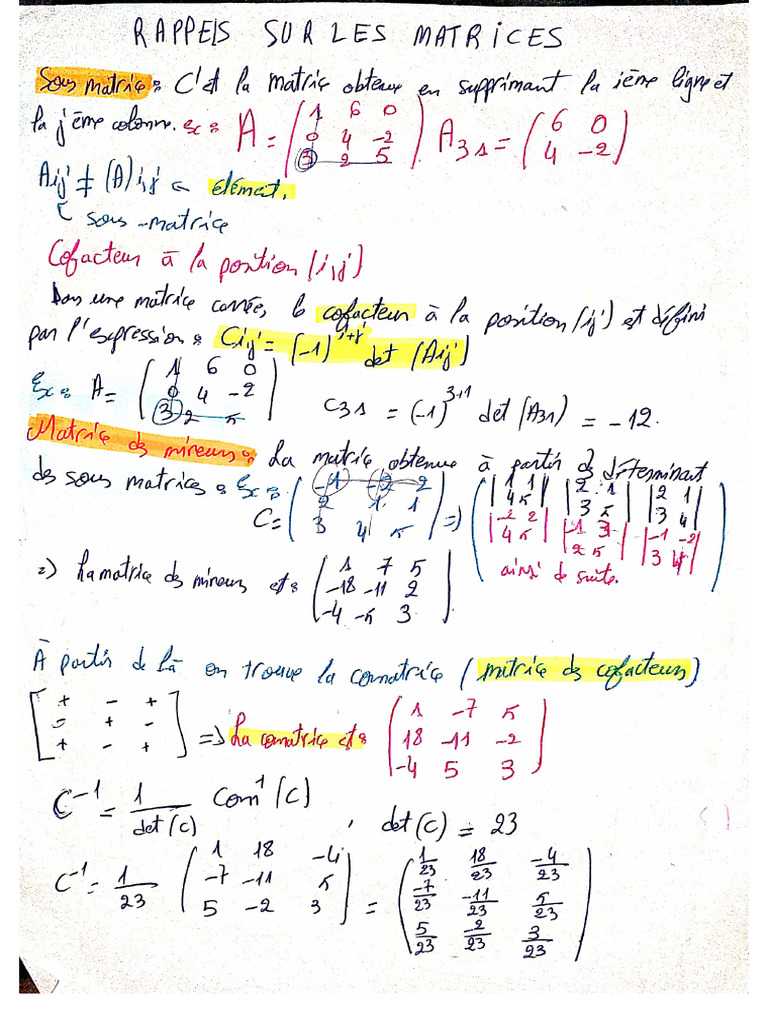 RAPPELS SUR LES MATRICES
Sous matrice : C'est la matrice obtenue en supprimant la ième ligne et
la j'ème colonne. ex : A = ( 1 6 0 ; 0 4 -2 ; 3 2 5 ) A31 = ( 6 0 ; 4 -2 )
Aij ≠ (A)i,j ← élément.
↖ sous-matrice
Cofacteur à la position (i,j)
Dans une matrice carrée, le cofacteur à la position (ij) est défini
par l'expression : Cij = (-1)^i+j det (Aij)
Ex : A = ( 1 6 0 ; 0 4 -2 ; 3 2 5 ) C31 = (-1)^3+1 det (A31) = -12.
Matrice des mineurs : La matrice obtenue à partir des déterminant
des sous matrices : Ex : C = ( -1 -2 2 ; 2 1 1 ; 3 4 5 ) => ( |1 1 ; 4 5| |2 1 ; 3 5| |2 1 ; 3 4| ; |-2 2 ; 4 5| |-1 2 ; 3 5| |-1 -2 ; 3 4| ; ainsi de suite. )
=) La matrice des mineurs est : ( 1 7 5 ; -18 -11 2 ; -4 -5 3 )
À partir de là on trouve la comatrice (matrice des cofacteurs)
[ + - + ; - + - ; + - + ] => La comatrice est : ( 1 -7 5 ; 18 -11 -2 ; -4 5 3 )
C^-1 = 1/det(C) Com^t (C) , det(C) = 23
C^-1 = 1/23 ( 1 18 -4 ; -7 -11 5 ; 5 -2 3 ) = ( 1/23 18/23 -4/23 ; -7/23 -11/23 5/23 ; 5/23 -2/23 3/23 )